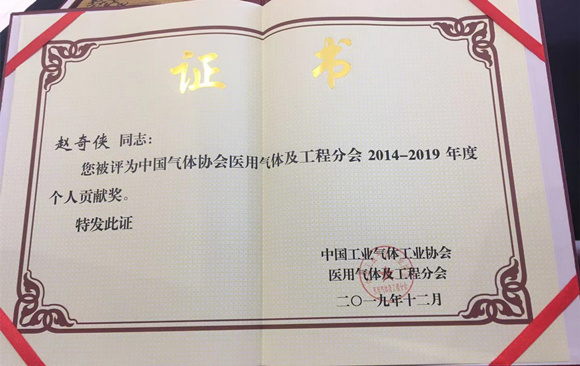 证 书
赵奇侠 同志：
您被评为中国气体协会医用气体及工程分会 2014-2019 年度
个人贡献奖。
特发此证
中国工业气体工业协会
医用气体及工程分会
二〇一九年十二月